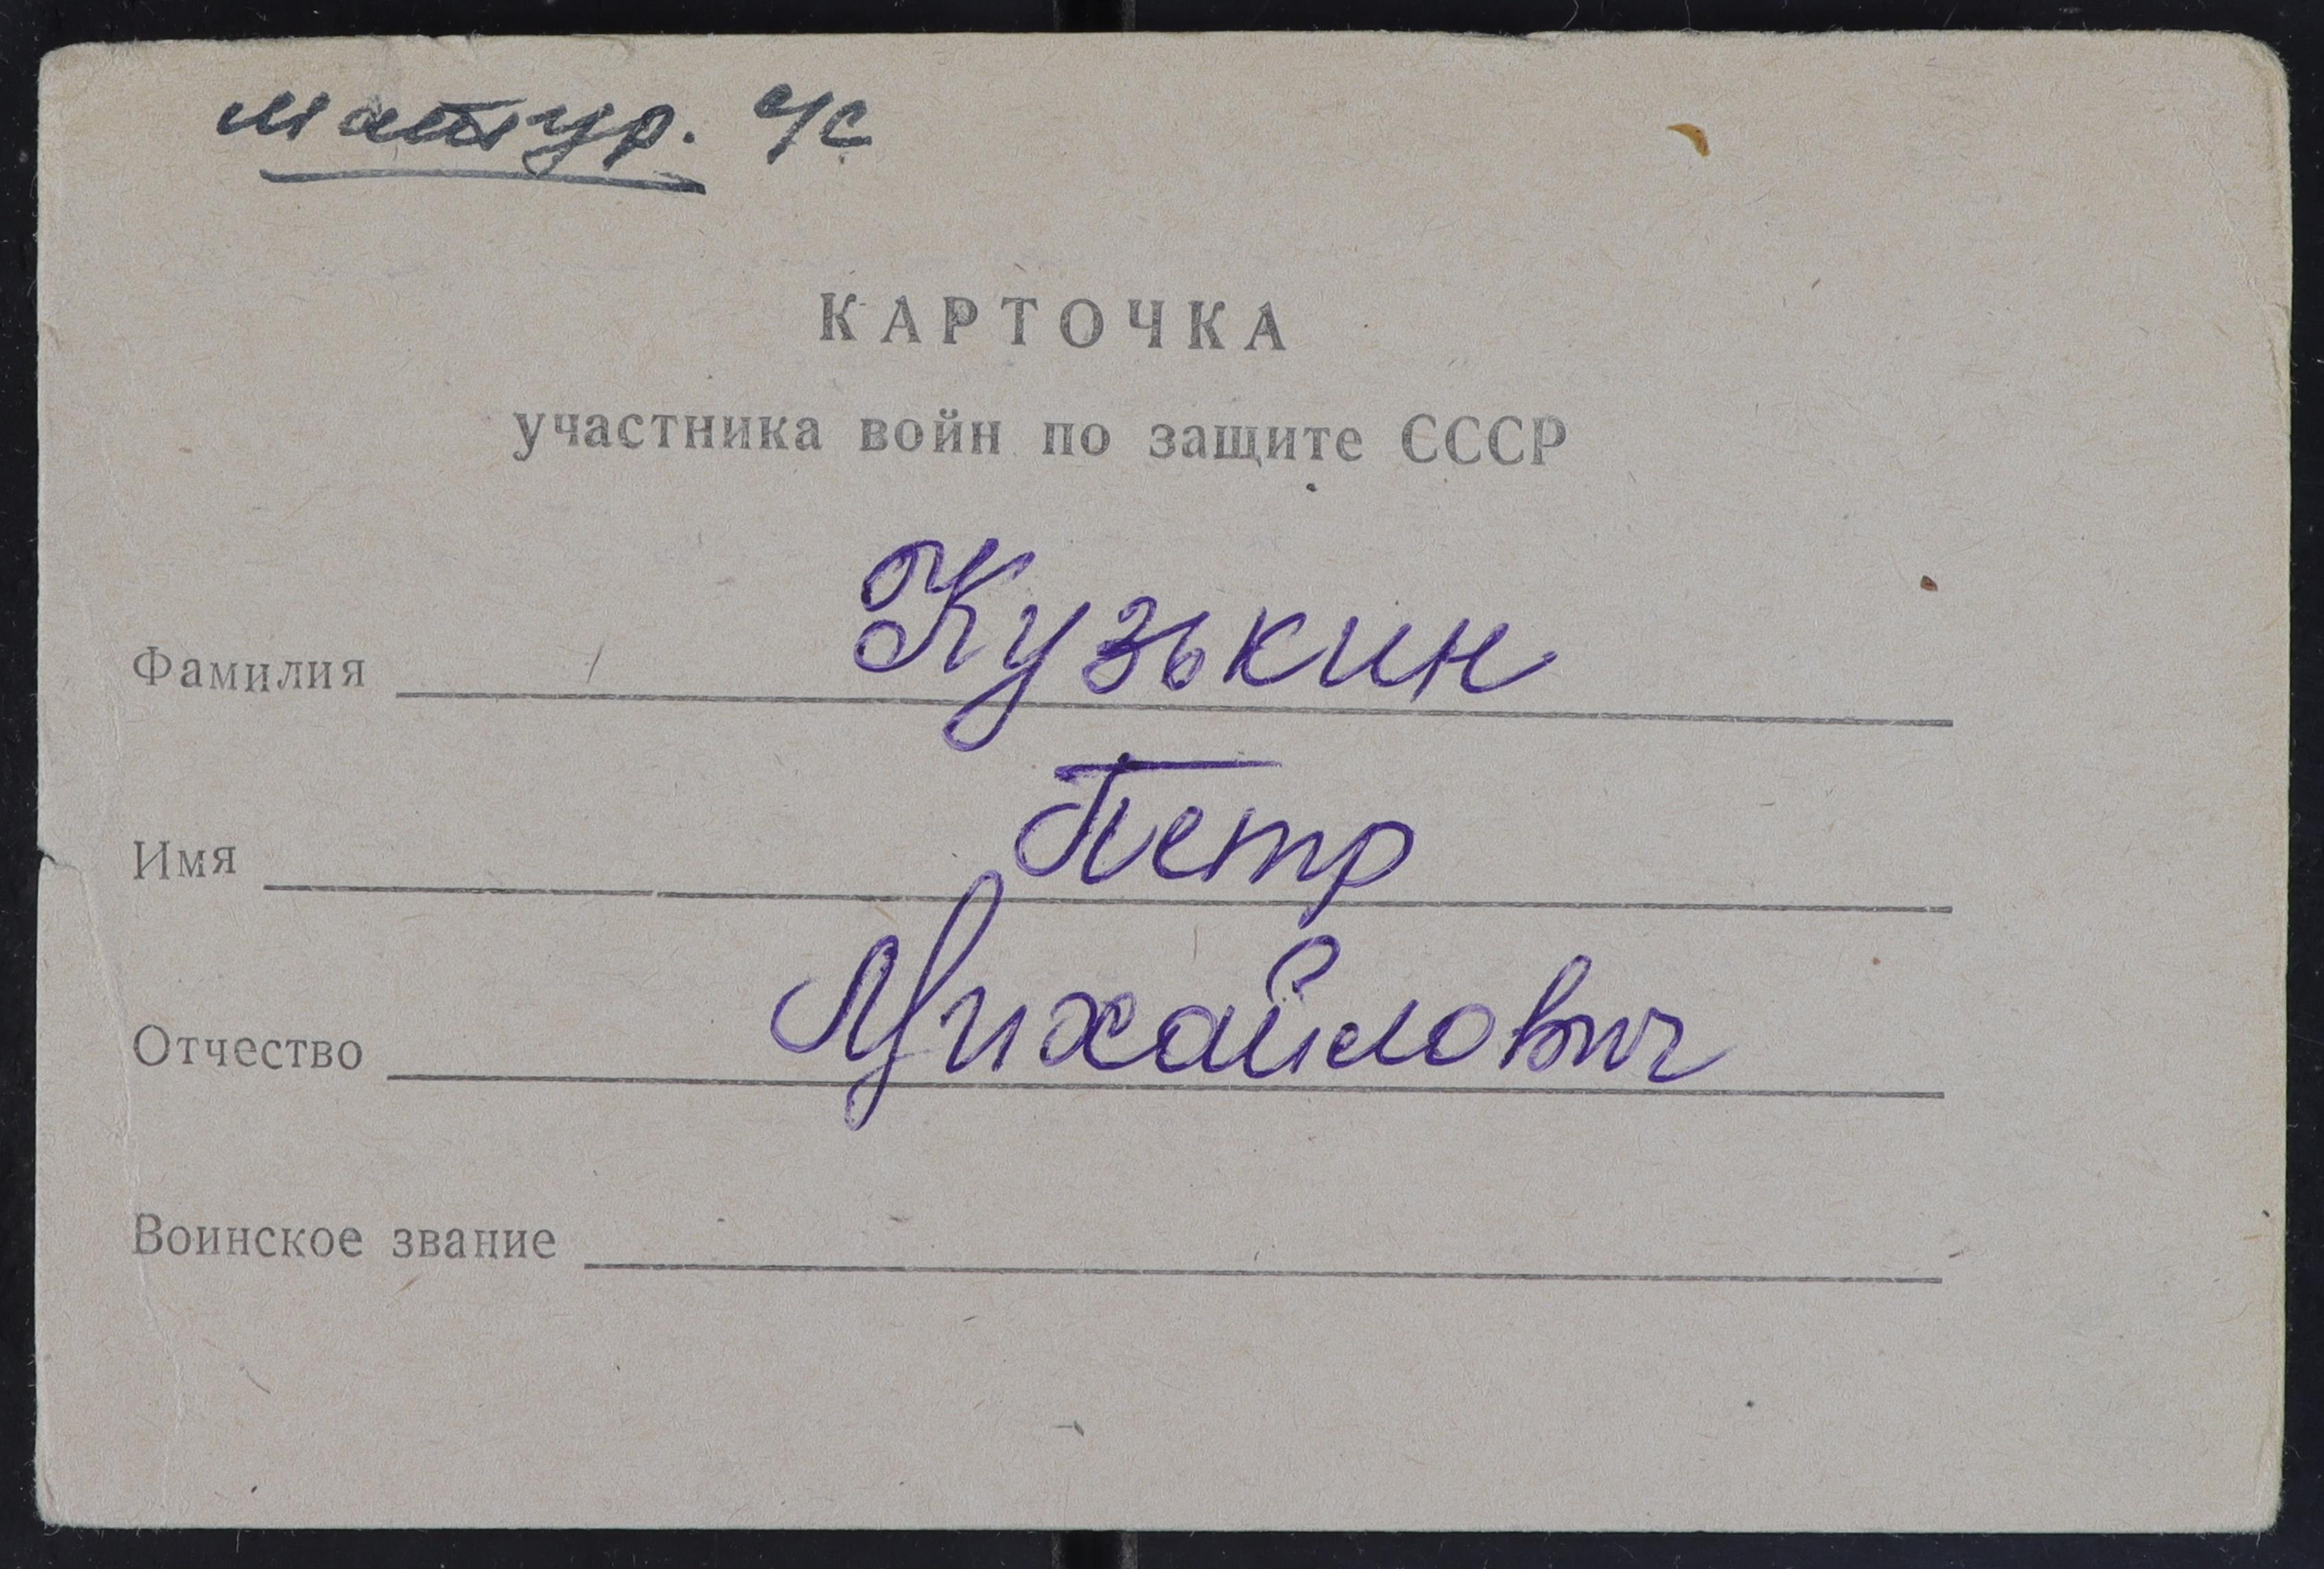 матур. ч/с
КАРТОЧКА
участника войн по защите СССР
Фамилия Кузькин
Имя Петр
Отчество Михайлович
Воинское звание